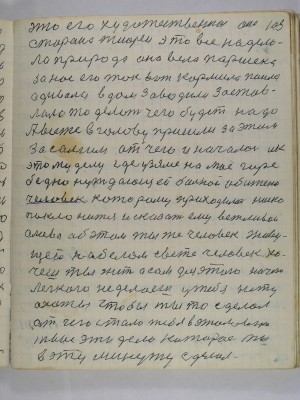 это его художественная она 103
старана жизни это все надело-
ла природа она вела паршека
за нос его ток вот кормила поила
адивала в дом заводила застав-
лала то делат чего будит надо
А выже в голову пришли за этим
за самим от чего и началос ик
этому делу где узялс на моё горе
бедно нуждающей болной обижено
человек которому приходилос нико-
му нитя и сказат ему вежливои
слова об этом ты же человек живу-
щей на белом свете человек хо-
чеш ты жит а сам для этого ничего
легкого не делаеш у тебя нету
ахоты чтобы ты то сделал
от чего стало тебя в этом
твое эта дело которое ты
в эту минуту сделал-